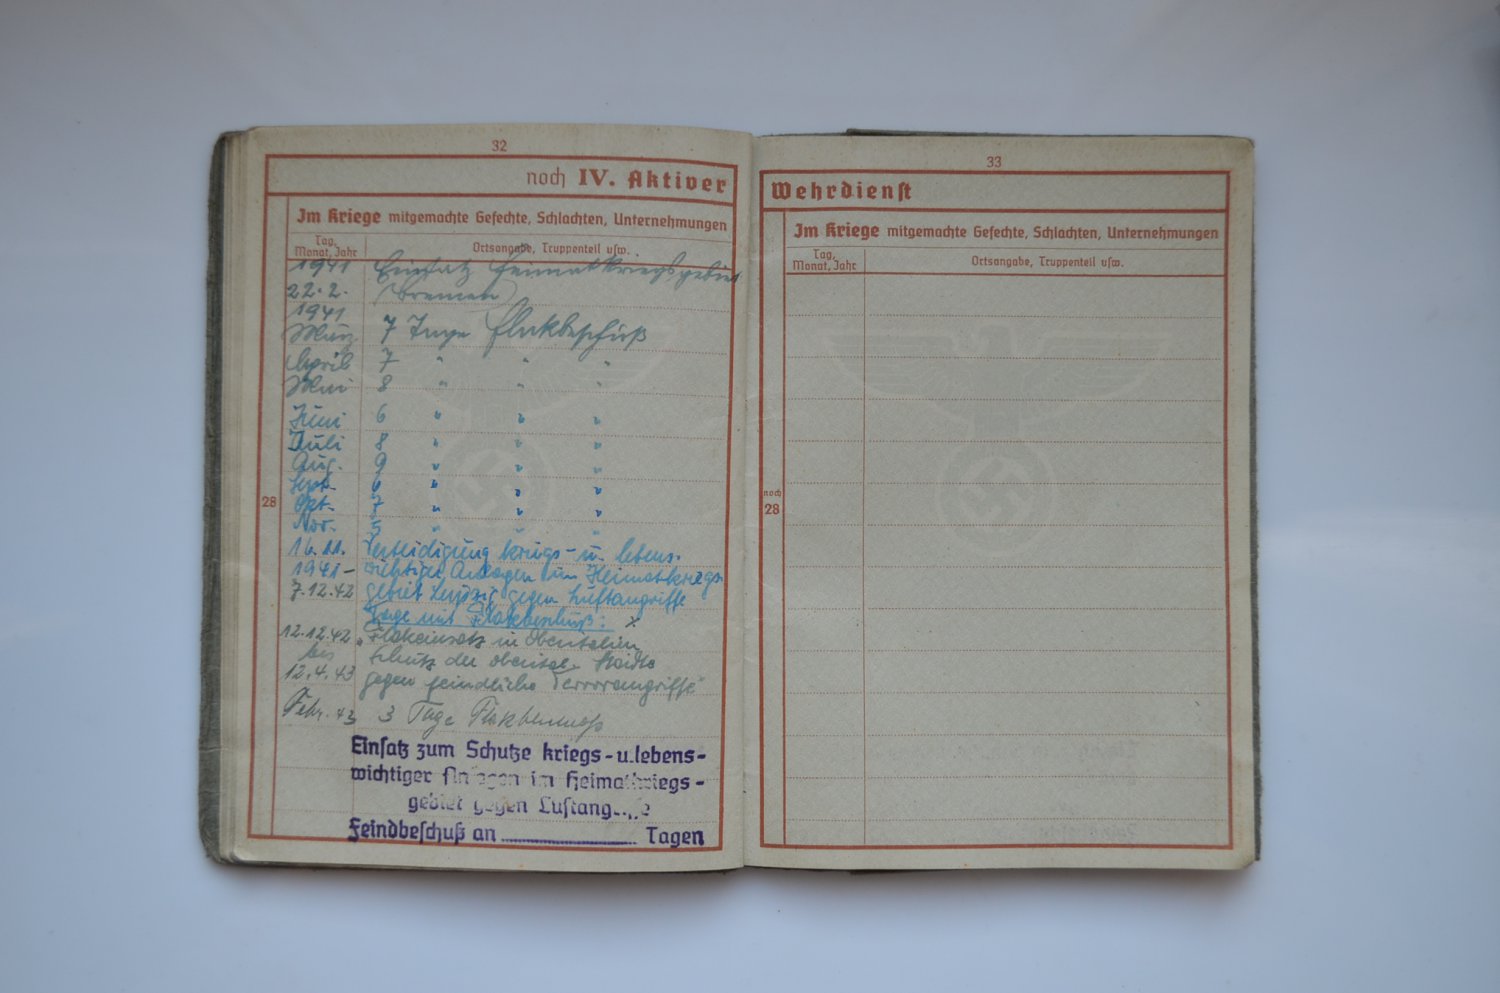 32
noch IV. Aktiver
Im Kriege mitgemachte Gefechte, Schlachten, Unternehmungen
Tag, Monat, Jahr
Ortsangabe, Truppenteil usw.
28
1941 Einsatz Heimatkriegsgebiet
22.2. (Bremen)
1941
März 7 Tage Flakbeschuß
April 7 " " "
Mai 8 " " "
Juni 6 " " "
Juli 8 " " "
Aug. 9 " " "
Sept. 6 " " "
Okt. 7 " " "
Nov. 5 " " "
16.11. Verteidigung kriegs- u. lebens-
1941- wichtiger Anlagen im Heimatkriegs-
7.12.42 gebiet Leipzig gegen Luftangriffe
Tage mit Flakbeschuß: x
12.12.42 „Flakeinsatz in Oberitalien
bis Schutz der oberital. Städte
12.4.43 gegen feindliche Terrorangriffe"
Febr. 43 3 Tage
Einsatz zum Schutze kriegs- u. lebens-
wichtiger Anlagen im Heimatkriegs-
gebiet gegen Luftangriffe
Feindbeschuß an Tagen
33
Wehrdienst
Im Kriege mitgemachte Gefechte, Schlachten, Unternehmungen
Tag, Monat, Jahr
Ortsangabe, Truppenteil usw.
noch
28